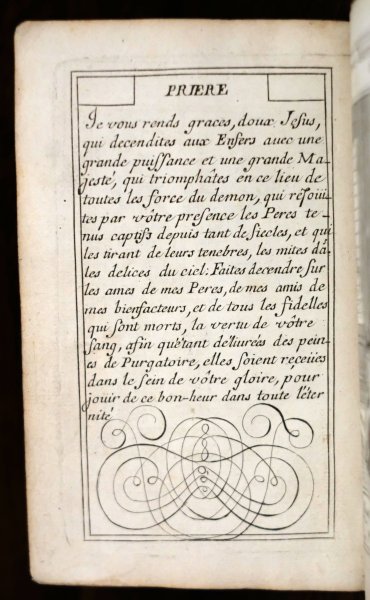 PRIERE
Je vous rends graces, doux Jesus,
qui decendites aux Enfers avec une
grande puissance et une grande Ma-
jesté, qui triomphâtes en ce lieu de
toutes les force du demon, qui réjoui-
tes par vôtre presence les Peres te-
nus captifs depuis tant de siecles, et qui
les tirant de leurs tenebres, les mites dã-
les delices du ciel: Faites decendre sur
les ames de mes Peres, de mes amis de
mes bienfacteurs, et de tous les fidelles
qui sont morts, la vertu de vôtre
sang, afin qu'étant déliurées des pein-
es de Purgatoire, elles soient reçeües
dans le sein de vôtre gloire, pour
jouir de ce bon-heur dans toute l'éter
nité